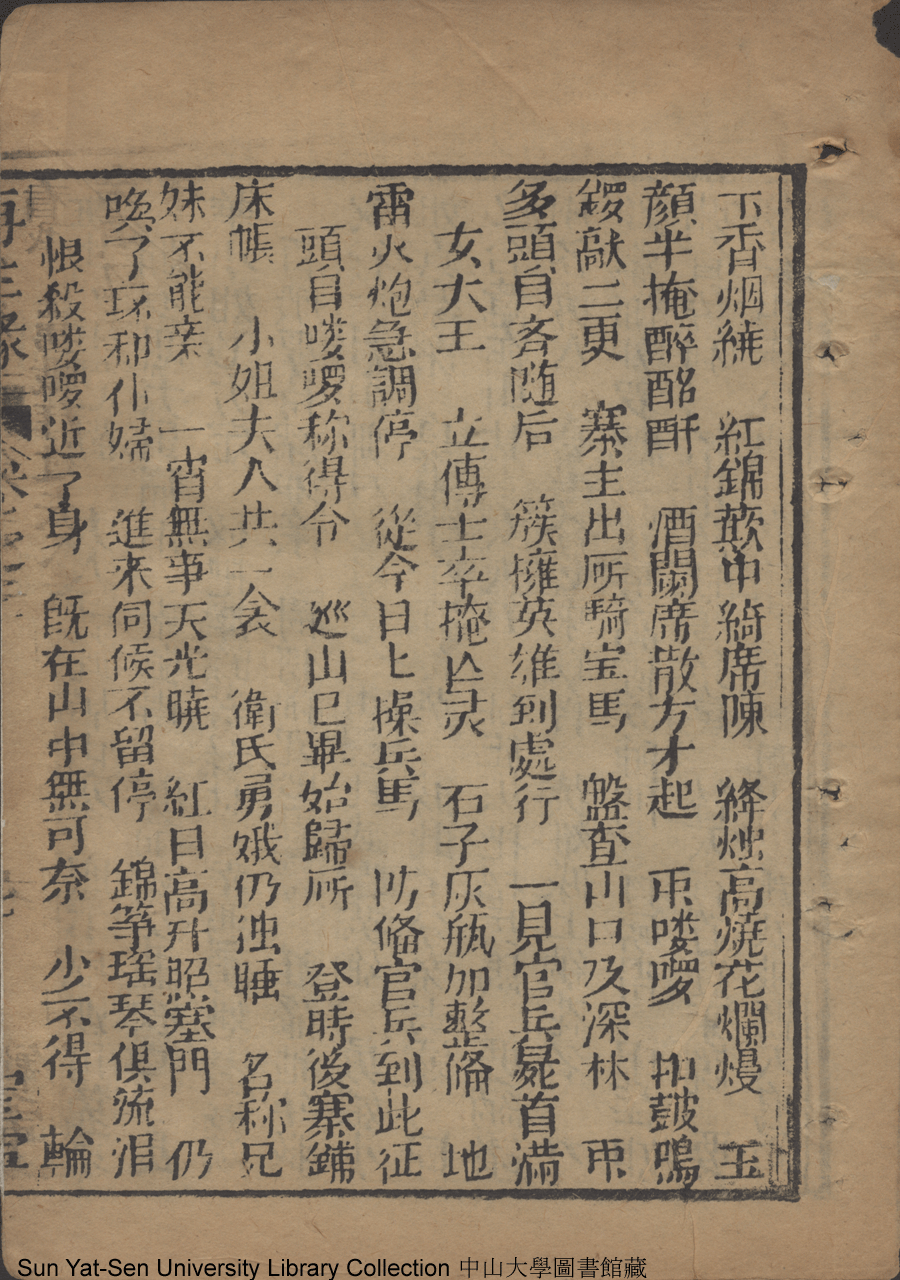 下香烟繞　紅錦欺巾綺席陳　絳燭高燒花爛熳　玉
顔半掩醉酩酊　酒闌席散方才起　帀嘍囉　扣皷鳴
鑼敲二更　寨主出厛騎宝馬　盤查山口及深林　帀
多頭自吝随后　簇擁英雄到處行　一見官兵毙首滿
女大王　立傳士卒掩亾灵　石子灰瓶加整俻　地
雷火炮急調停　從今日上操兵馬　防俻官兵到此征
頭自嘍囉称得令　巡山已畢始歸厛　登時後寨鋪
床帳　小姐夫人共一衾　衛氏勇娥仍独睡　名称兄
妹不能亲　一宵無事天光曉　紅日高升照塞門　仍
喚了环和仆婦　進来伺候不留停　錦筝瑶琴俱流泪
恨殺嘍囉近了身　旣在山中無可奈　少不得　輪
再生緣　卷之
Sun Yat-Sen University Library Collection 中山大學圖書館藏